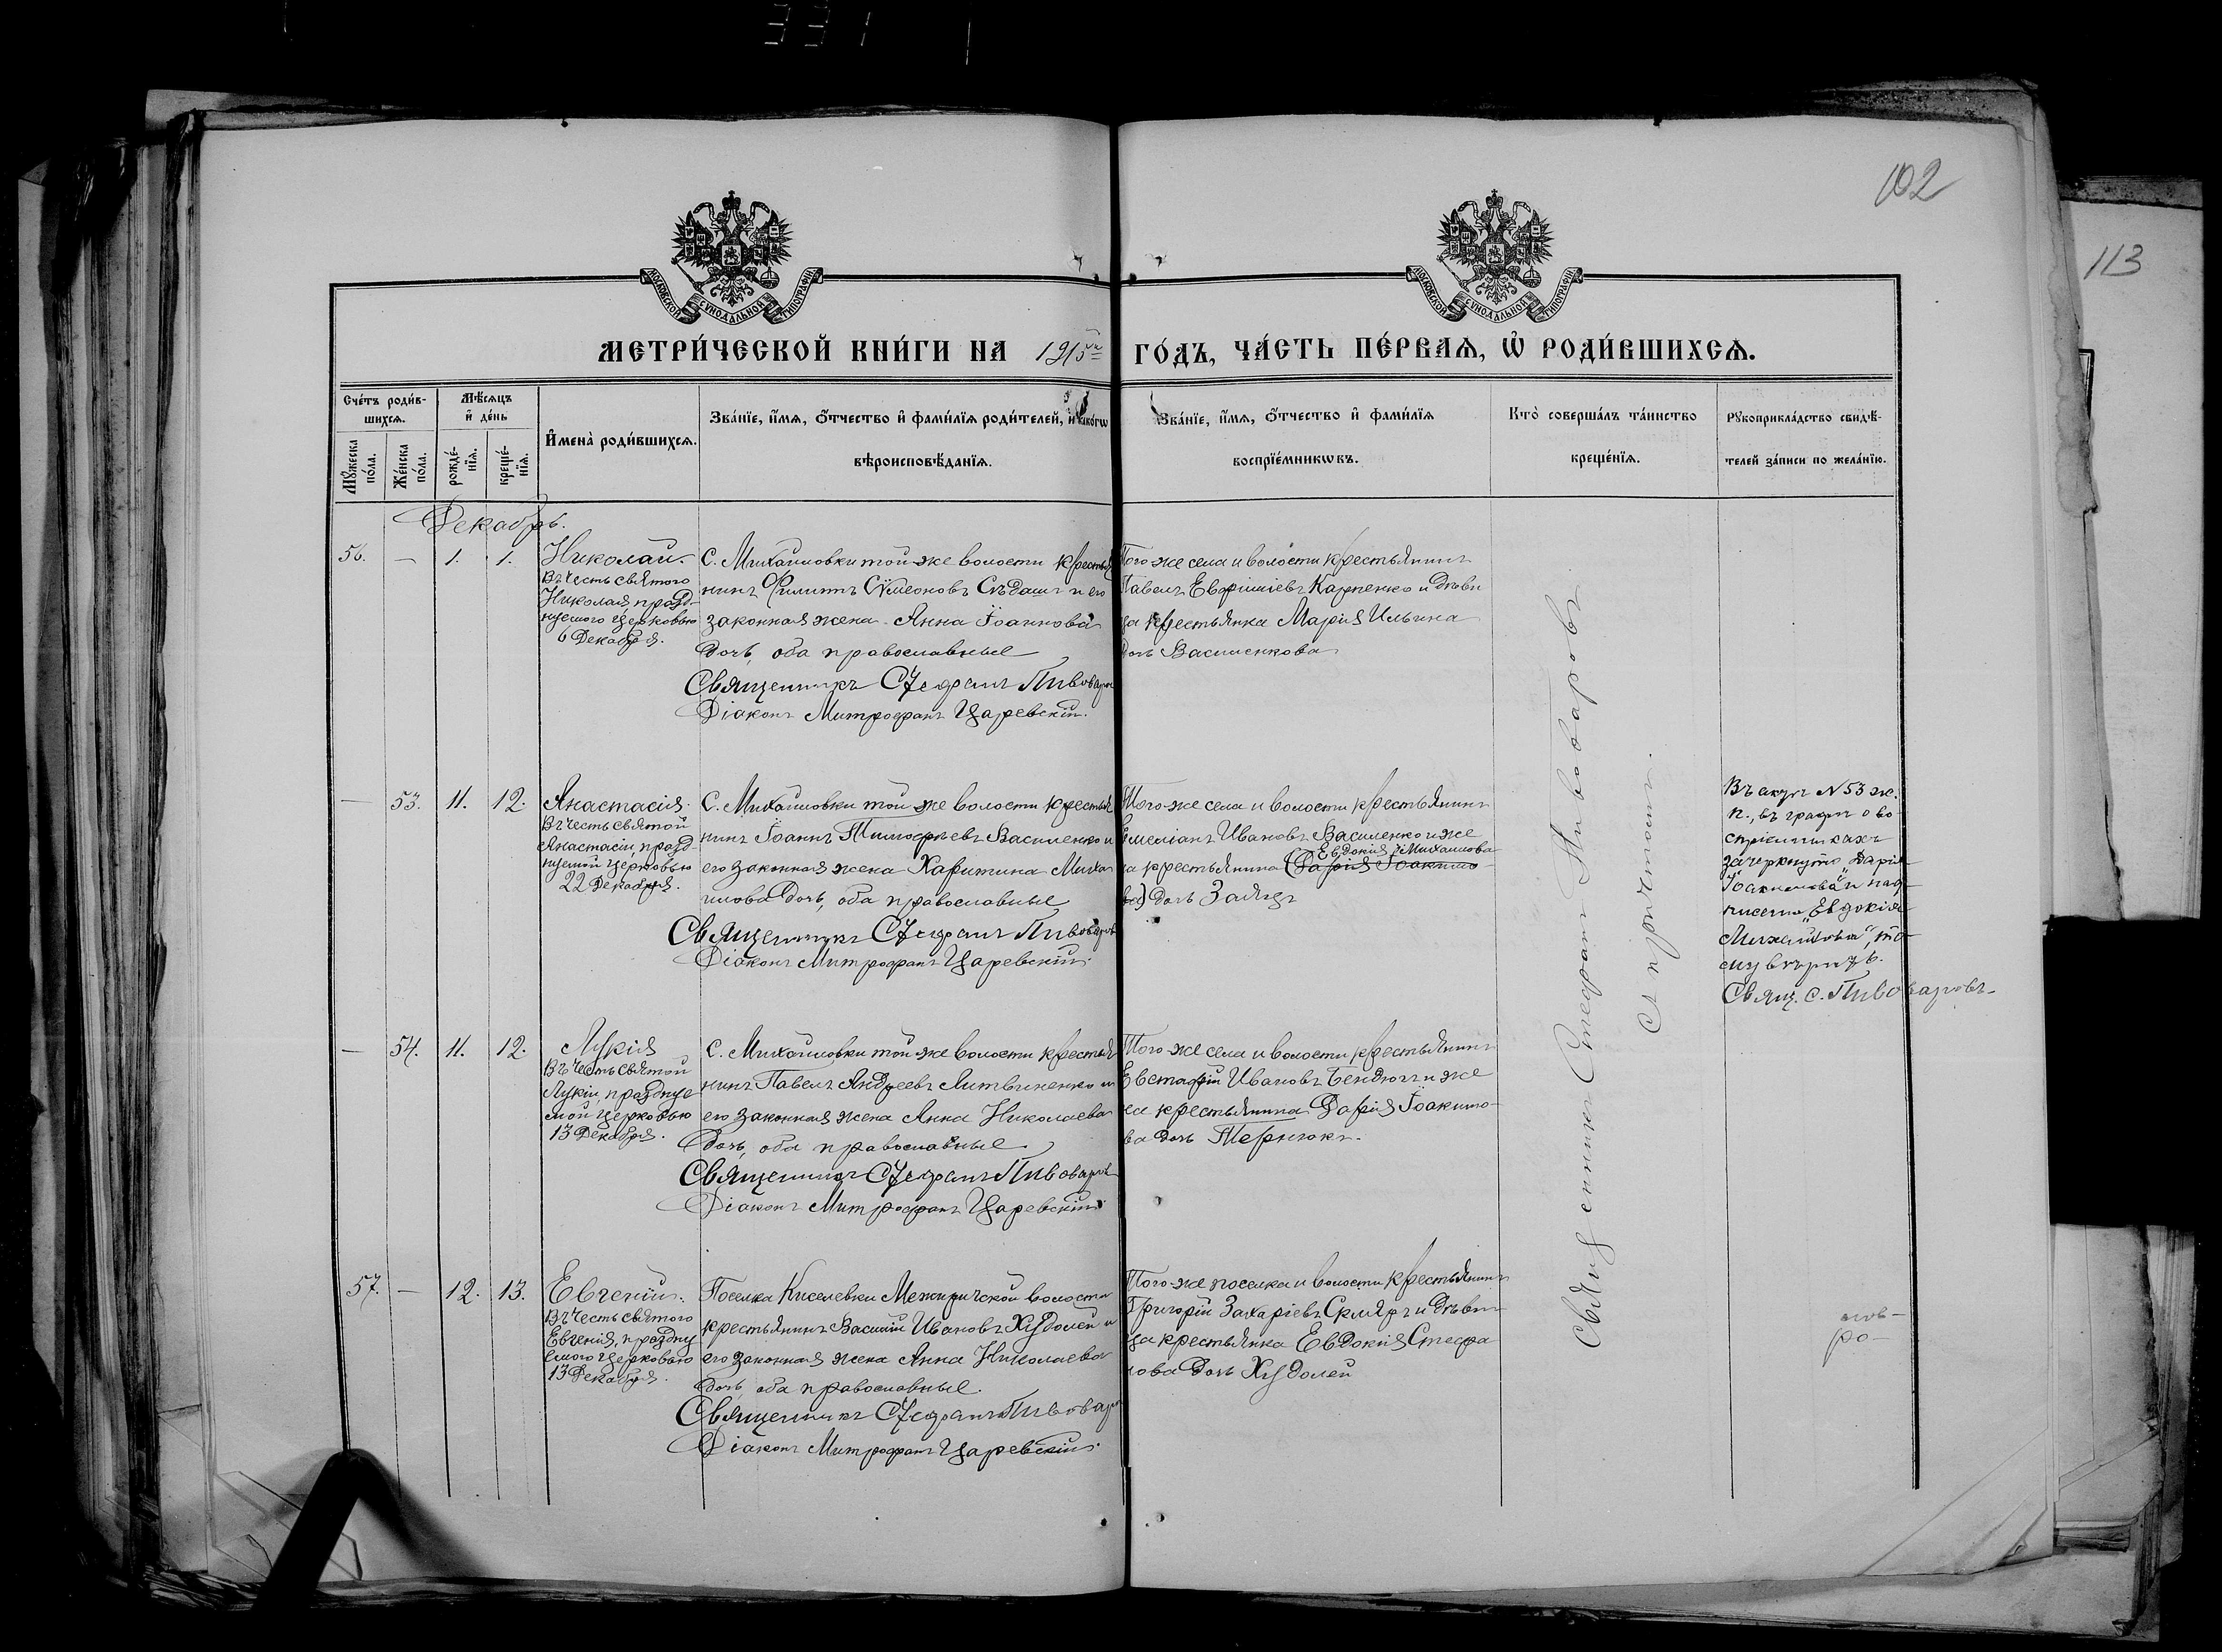 331
102
113
МОСКОВСКОЙ СѴНОДАЛЬНОЙ ТИПОГРАФІИ
МОСКОВСКОЙ СѴНОДАЛЬНОЙ ТИПОГРАФІИ
МЕТРИ́ЧЕСКОЙ КНИ́ГИ НА 1915й ГО́ДЪ, ЧА́СТЬ ПЕ́РВАѦ, Ѡ҆ РОДИ́ВШИХСѦ.
Сче́тъ роди́в-
шихсѧ.
Мꙋ́жеска
по́ла.
Же́нска
по́ла.
Мѣ́сѧцъ
и҆ де́нь
рожде́-
нїѧ.
креще́-
нїѧ.
И҆мена̀ роди́вшихсѧ.
Зва́нїе, и҆́мѧ, ѻ҆́тчество и҆ фами́лїѧ роди́телей, и҆ како́гѡ
вѣроисповѣ́данїѧ.
Зва́нїе, и҆́мѧ, ѻ҆́тчество и҆ фами́лїѧ
воспрїе́мникѡвъ.
Кто̀ соверша́лъ та́инство
креще́нїѧ.
Рꙋкоприкла́дство свидѣ́-
телей за́писи по жела́нїю.
Декабрь.
56.
—
1.
1.
Николай.
Въ честь святого
Николая, празд-
нуемого Церковью
6 Декабря.
С. Михайловки той-же волости крестья
нинъ Филиппъ Сѵмеоновъ Сѣдашъ и его
законная жена Анна Іоаннова
дочь, оба православные
Священникъ Стефанъ Пивовар
Діаконъ Митрофанъ Царевскій.
Того-же села и волости крестьянинъ
Павелъ Евфиміевъ Карпенко и дѣви
ца крестьянка Марія Ильина
дочь Василенкова
—
53.
11.
12.
Анастасія.
Въ честь святой
Анастасіи, празд-
нуемой Церковью
22 Декабря.
С. Михайловки той-же волости крестья
нинъ Іоаннъ Тимофѣевъ Василенко и
его законная жена Харитина Миха
илова дочь, оба православные
Священникъ Стефанъ Пивоваров
Діаконъ Митрофанъ Царевскій.
Того-же села и волости крестьянинъ
Емеліанъ Ивановъ Василенко и же
Евдокія Михаилова
на крестьянина (Дарія Іоакимо-
ва) дочь Заяцъ
Въ актѣ № 53 ж.
п., въ графѣ о во
спріемникахъ
зачеркнуто „Дарія
Іоакимова" и над-
писано „Евдокія
Михайлова", то-
му вѣрить.
Свящ. С. Пивоваровъ
—
54.
11.
12.
Лукія
Въ честь святой
Лукіи, празднуе
мой Церковью
13 Декабря.
С. Михайловки той-же волости крестья
нинъ Павелъ Андреевъ Литвиненко и
его законная жена Анна Николаева
дочь, оба православные
Священникъ Стефанъ Пивоваров
Діаконъ Митрофанъ Царевскій
Того-же села и волости крестьянинъ
Евстафій Ивановъ Бендюгъ и же
на крестьянина Дарія Іоакимо-
ва дочь Тернюкъ.
57.
—
12.
13.
Евгеній.
Въ честь святого
Евгенія, празднуе
емого Церковью
13 Декабря.
Поселка Киселевки Межиричской волости
крестьянинъ Василій Ивановъ Худолей и
его законная жена Анна Николаева
дочь, оба православные.
Священникъ Стефанъ Пивовар
Діаконъ Митрофанъ Царевскій.
Того-же поселка и волости крестьянинъ
Григорій Захаріевъ Скляръ и дѣви-
ца крестьянка Евдокія Стефа
нова дочь Худолей
Священникъ Стефанъ Пивоваровъ
ро-